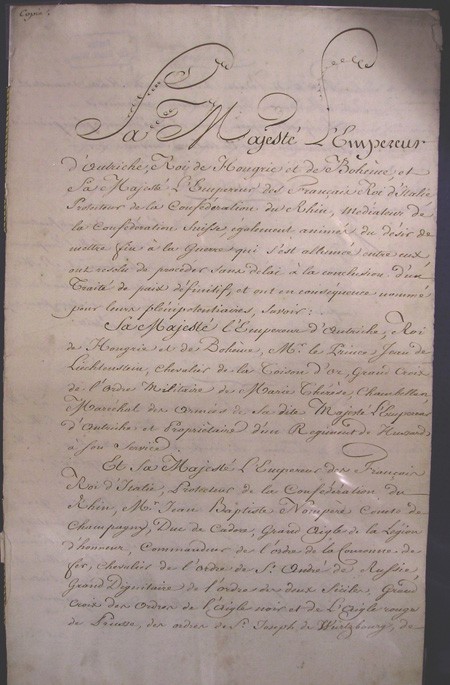 Copie.
Sa Majesté L'Empereur
d'Autriche, Roi de Hongrie et de Bohème, et
Sa Majesté L'Empereur des Français Roi d'Italie
Protecteur de la Confédération du Rhin, Médiateur de
la Confédération Suisse également animés du désir de
mettre fin à la Guerre qui s'est allumée entre eux
ont résolu de procéder sans délai à la conclusion d'un
Traité de paix définitif, et ont en conséquence nommé
pour leurs plénipotentiaires, savoir:
Sa Majesté l'Empereur d'Autriche, Roi
de Hongrie et de Bohème, Mr. le Prince Jean de
Liechtenstein, Chevalier de la Toison d'or, Grand Croix
de l'Ordre Militaire de Marie Thérèse, Chambellan,
Maréchal des Armées de Sa dite Majesté L'Empereur
d'Autriche et Propriétaire d'un Regiment de Hussards
à son Service.
Et Sa Majesté L'Empereur des Français
Roi d'Italie, Protecteur de la Confédération du
Rhin, Mr. Jean Baptiste Nompère Comte de
Champagny, Duc de Cadore, Grand Aigle de la Légion
d'honneur, Commandeur de l'ordre de la Couronne de
fer, Chevalier de l'ordre de St. André de Russie,
Grand Dignitaire de l'ordre des deux Siciles, Grand
Croix des Ordres de l'Aigle noir et de L'Aigle rouge
de Prusse, des ordres de St. Joseph de Würtzbourg, de